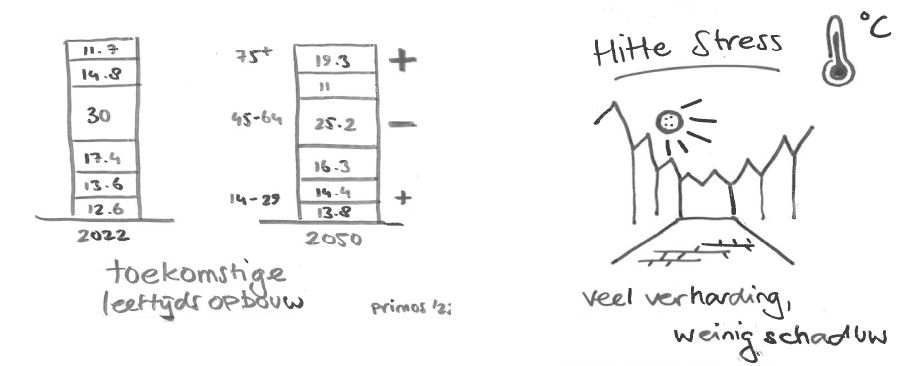 11.7
14.8
30
17.4
13.6
12.6
2022
75+
45-64
14-29
19.3
11
25.2
16.3
14.4
13.8
+
−
+
2050
toekomstige
leeftijds opbouw
primos
Hitte Stress
°C
veel verharding,
weinig schaduw